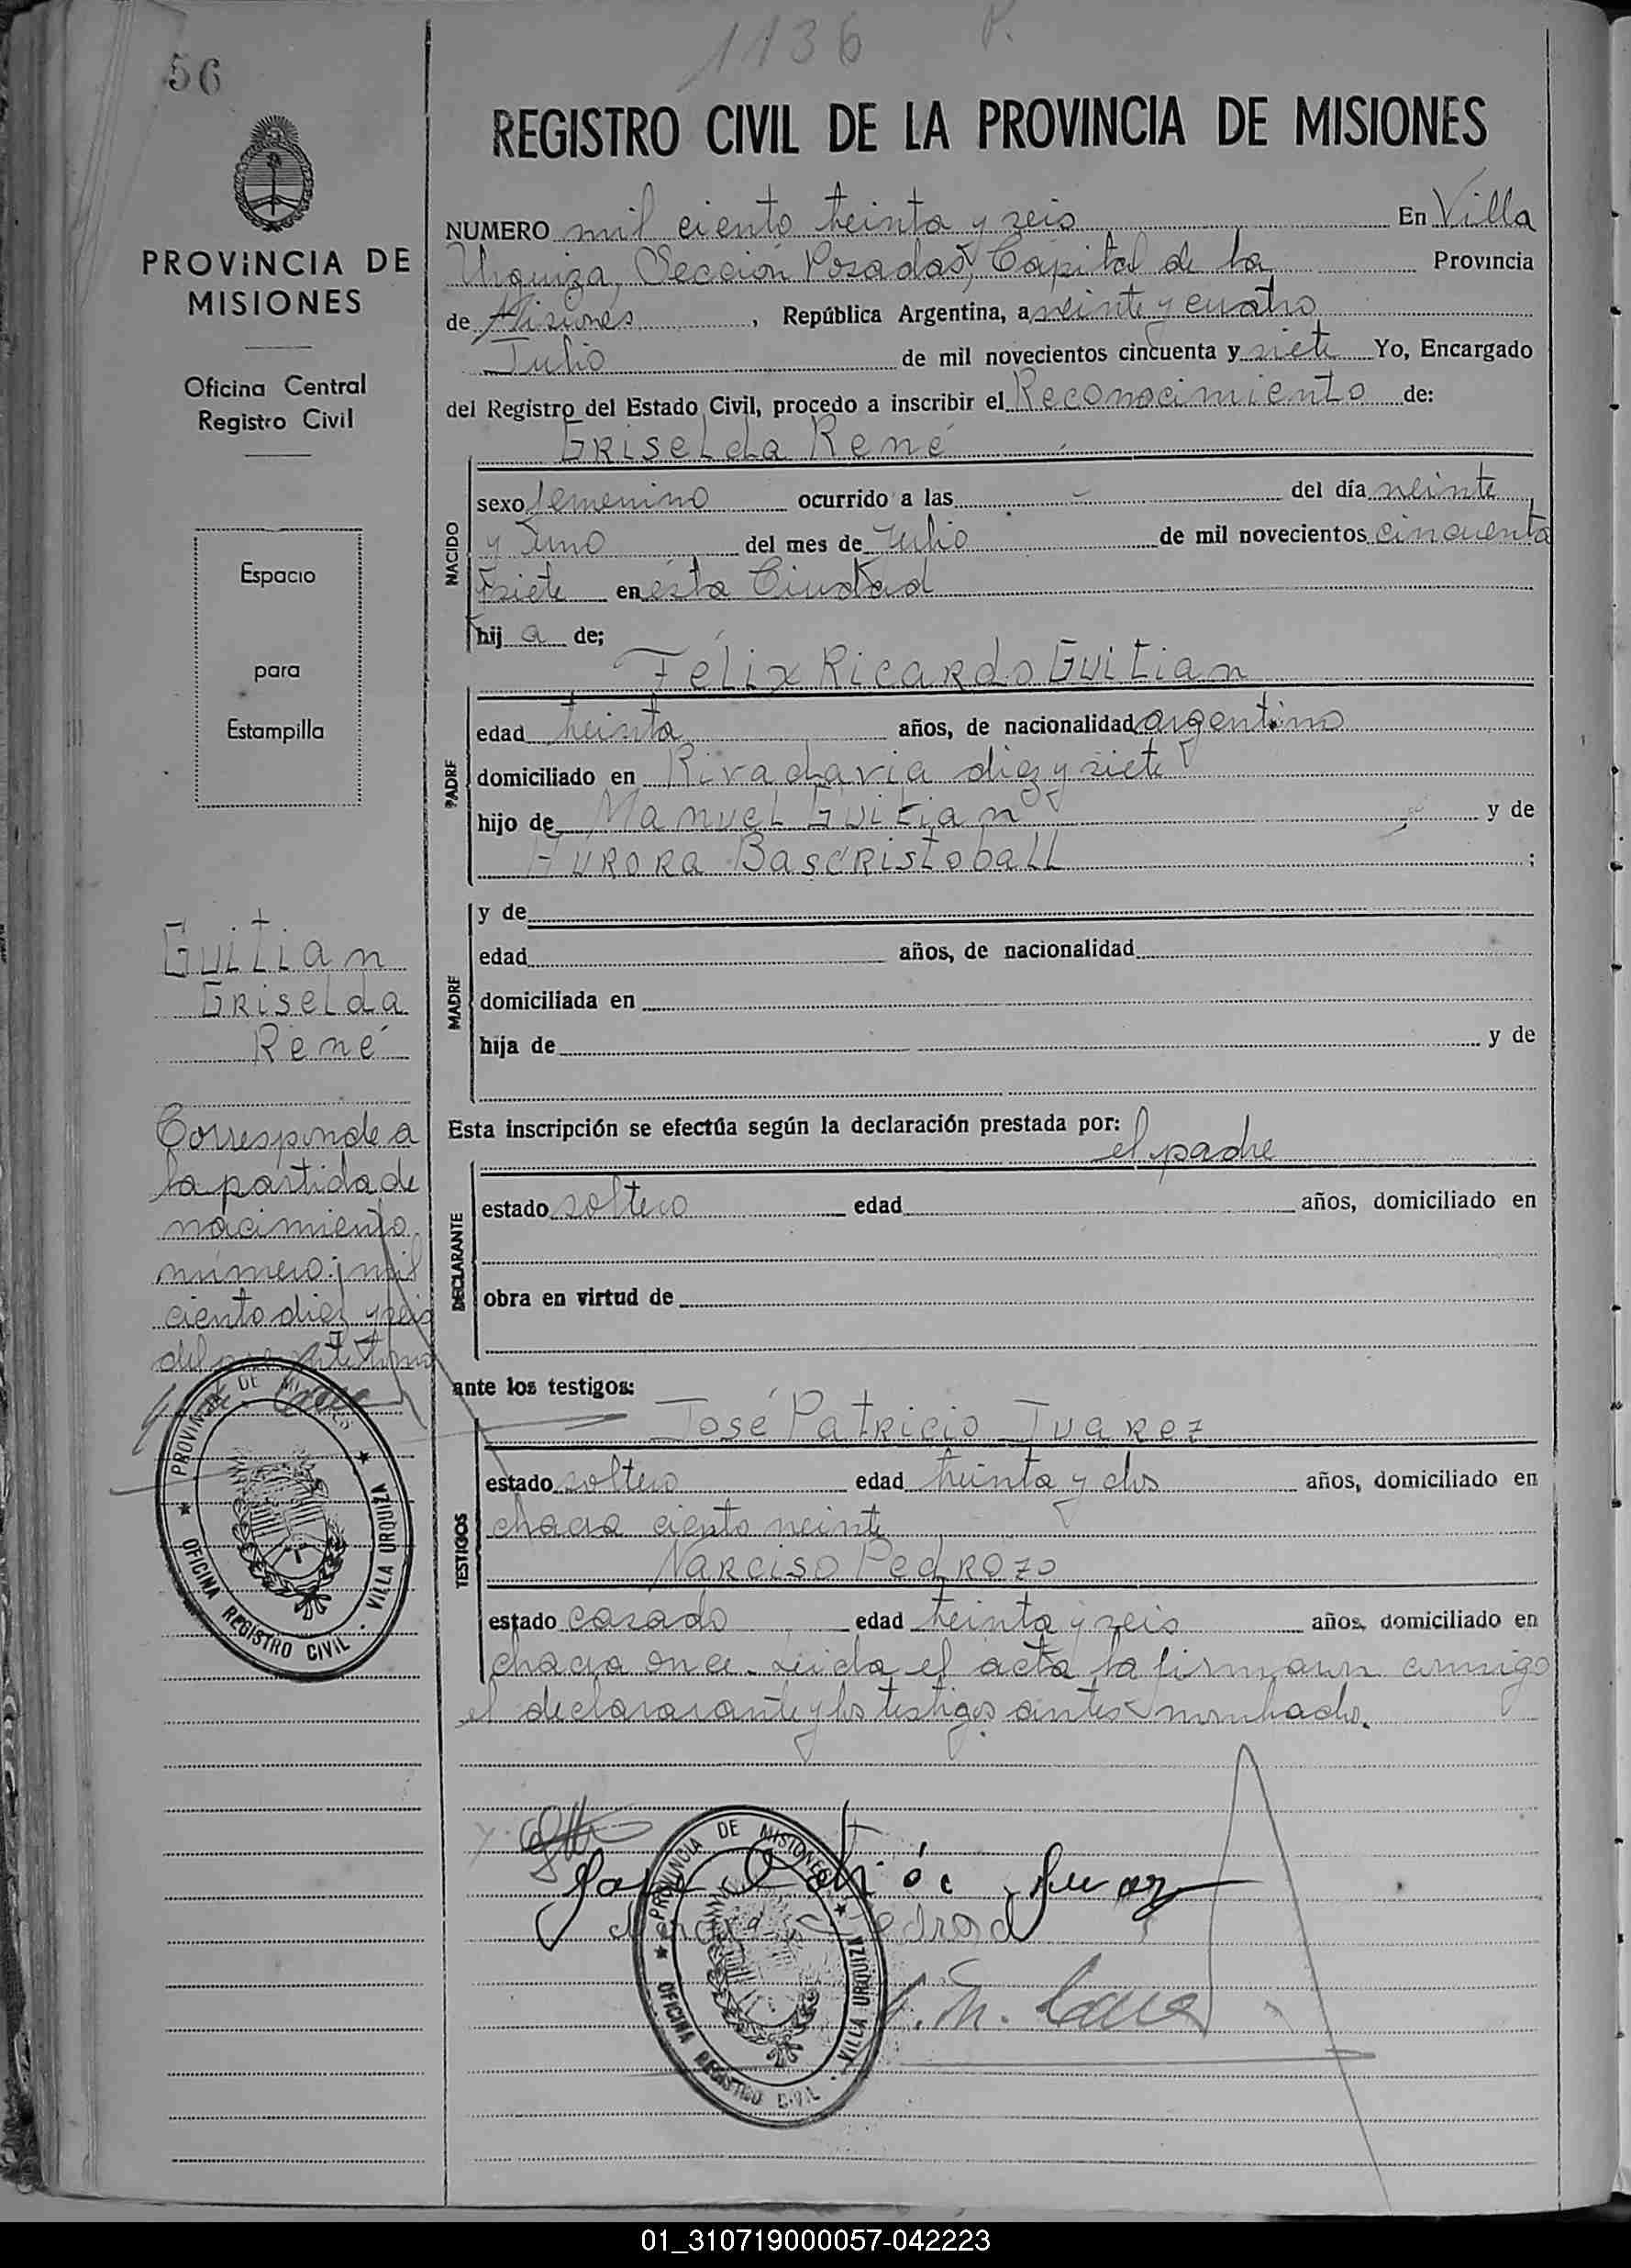 56
1136 P.
PROVINCIA DE
MISIONES
Oficina Central
Registro Civil
Espacio
para
Estampilla
Guitian
Griselda
René
Corresponde a
la partida de
nacimiento
número: mil
ciento diez y seis
del
PROVINCIA DE MISIONES
OFICINA REGISTRO CIVIL · VILLA URQUIZA
REGISTRO CIVIL DE LA PROVINCIA DE MISIONES
NUMERO mil ciento treinta y seis En Villa
Urquiza, Sección Posadas, Capital de la Provincia
de Misiones, República Argentina, a veinte y cuatro
Julio de mil novecientos cincuenta y siete Yo, Encargado
del Registro del Estado Civil, procedo a inscribir el Reconocimiento de:
Griselda René
NACIDO
sexo femenino ocurrido a las - del día veinte
y uno del mes de Julio de mil novecientos cincuenta
y siete en ésta Ciudad
hij a de;
Félix Ricardo Guitian
PADRE
edad treinta años, de nacionalidad argentino
domiciliado en Rivadavia diez y siete
hijo de Manuel Guitian y de
Aurora Bascristoball ;
MADRE
y de
edad años, de nacionalidad
domiciliada en
hija de y de
Esta inscripción se efectúa según la declaración prestada por:
el padre
DECLARANTE
estado soltero edad años, domiciliado en
obra en virtud de
ante los testigos:
José Patricio Juarez
TESTIGOS
estado soltero edad treinta y dos años, domiciliado en
chacra ciento veinte
Narciso Pedrozo
estado casado edad treinta y seis años, domiciliado en
chacra once. Leida el acta la firmaron conmigo
el declararante y los testigos antes nombrados.
PROVINCIA DE MISIONES
OFICINA REGISTRO CIVIL · VILLA URQUIZA
01_310719000057-042223